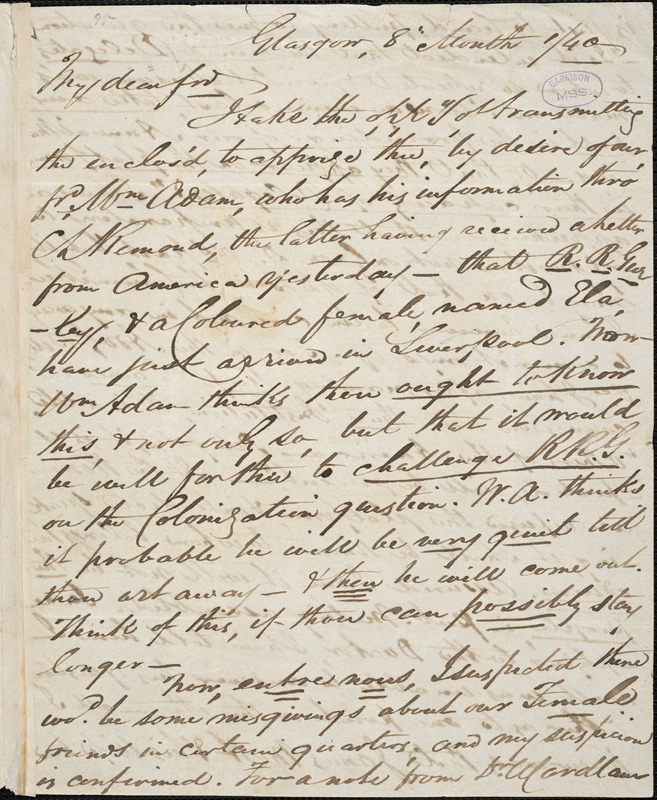 Glasgow, 8 Month 1/40
GARRISON
MSS.
My dear frd
I take the oppy of transmitting
the enclos'd, to apprize thee, by desire of our
frd Wm Adam, who has his information thro
Ch Remond, the latter having received a letter
from America yesterday — that R. R. Gur
-ley, & a Coloured female, named Ela,
have just arrived in Liverpool. Now
Wm Adam thinks thou ought to know
this, & not only so, but that it would
be well for thee to challenge R.R.G.
on the Colonization question. W.A. thinks
it probable he will be very quiet till
thou art away — & then he will come out.
Think of this, if thou can possibly stay
longer —
Now, entre nous, I suspected there
wod. be some misgivings about our Female
friends in certain quarters, and my suspicion
is confirmed. For a note from Dr Wardlaw